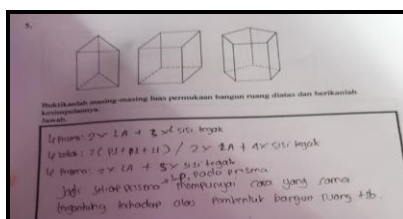 5.
Buktikanlah masing-masing luas permukaan bangun ruang diatas dan berikanlah
kesimpulannya
Jawab.
Lp Prisma: 2 x LA + 3 x sisi tegak
Lp balok: 2(pl+pt+lt) / 2 x LA + 4x sisi tegak
Lp Prisma: 2x LA + 5x sisi tegak
Jadi setiap prisma Lp. pada prisma mempunyai cara yang sama
tergantung terhadap alas pembentuk bangun ruang tsb.